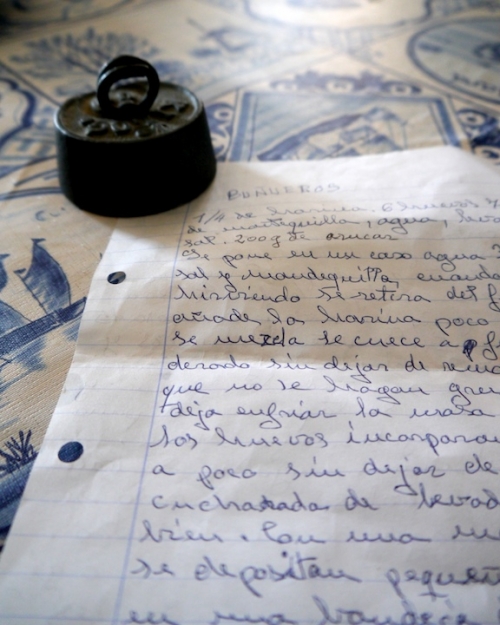 BUÑUELOS
1/4 de harina. 6 huevos
de mantequilla, agua,
sal. 200 g de azucar
Se pone en un cazo agua
sal y mantequilla, cuando
hirviendo se retira del
añade la harina poco
se mezcla se cuece a
derado sin dejar de
que no se hagan
deja enfriar la masa
los huevos
a poco sin dejar de
cucharada de
bien. Con una
se depositan
en una bandeja